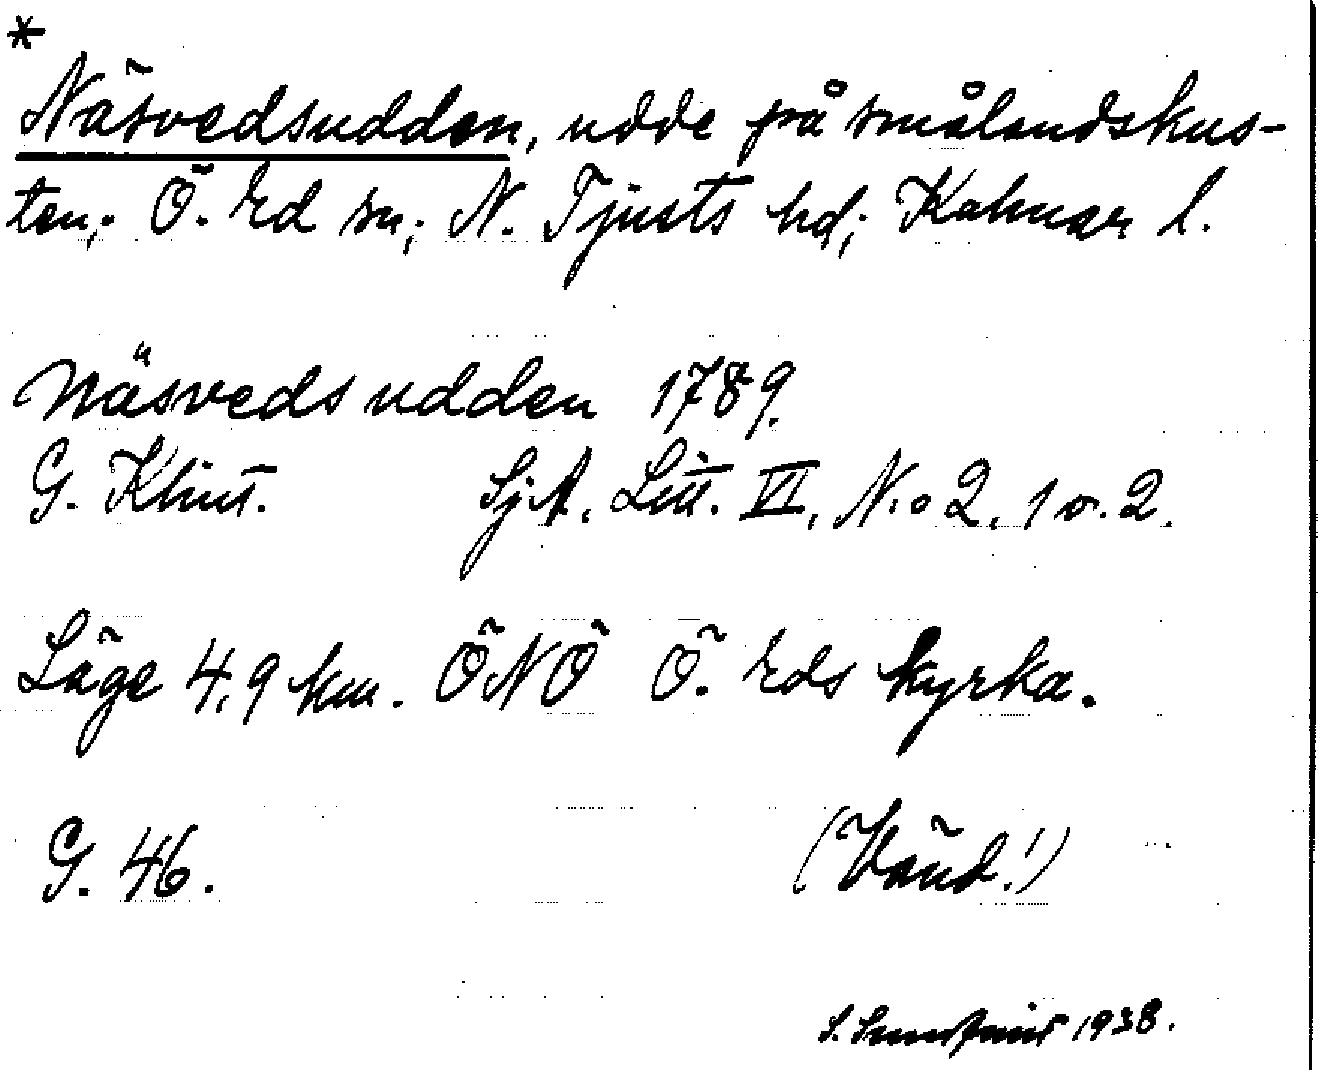 *
Näsvedsudden, udde på smålandskus-
ten; Ö. Ed sn; N. Tjusts hd; Kalmar l.
Näsvedsudden 1789.
G. Klint. SjA. Litt. VI, N.o 2. 1 o. 2.
Läge 4,9 km. ÖNÖ Ö. Eds kyrka.
G. 46. (Vänd!)
S. 1938.